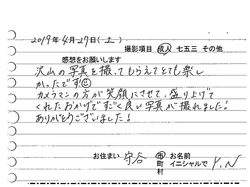 2019年4月27日(土)
撮影項目 成人 七五三 その他
感想をお願いします
沢山の写真を撮ってもらえてとても楽し
かったです
カメラマンの方が笑顔にさせて、盛り上げて
くれたおかげですごく良い写真が撮れました!
ありがとうございました!
お住まい 守谷 市町村 お名前 イニシャルで Y.N